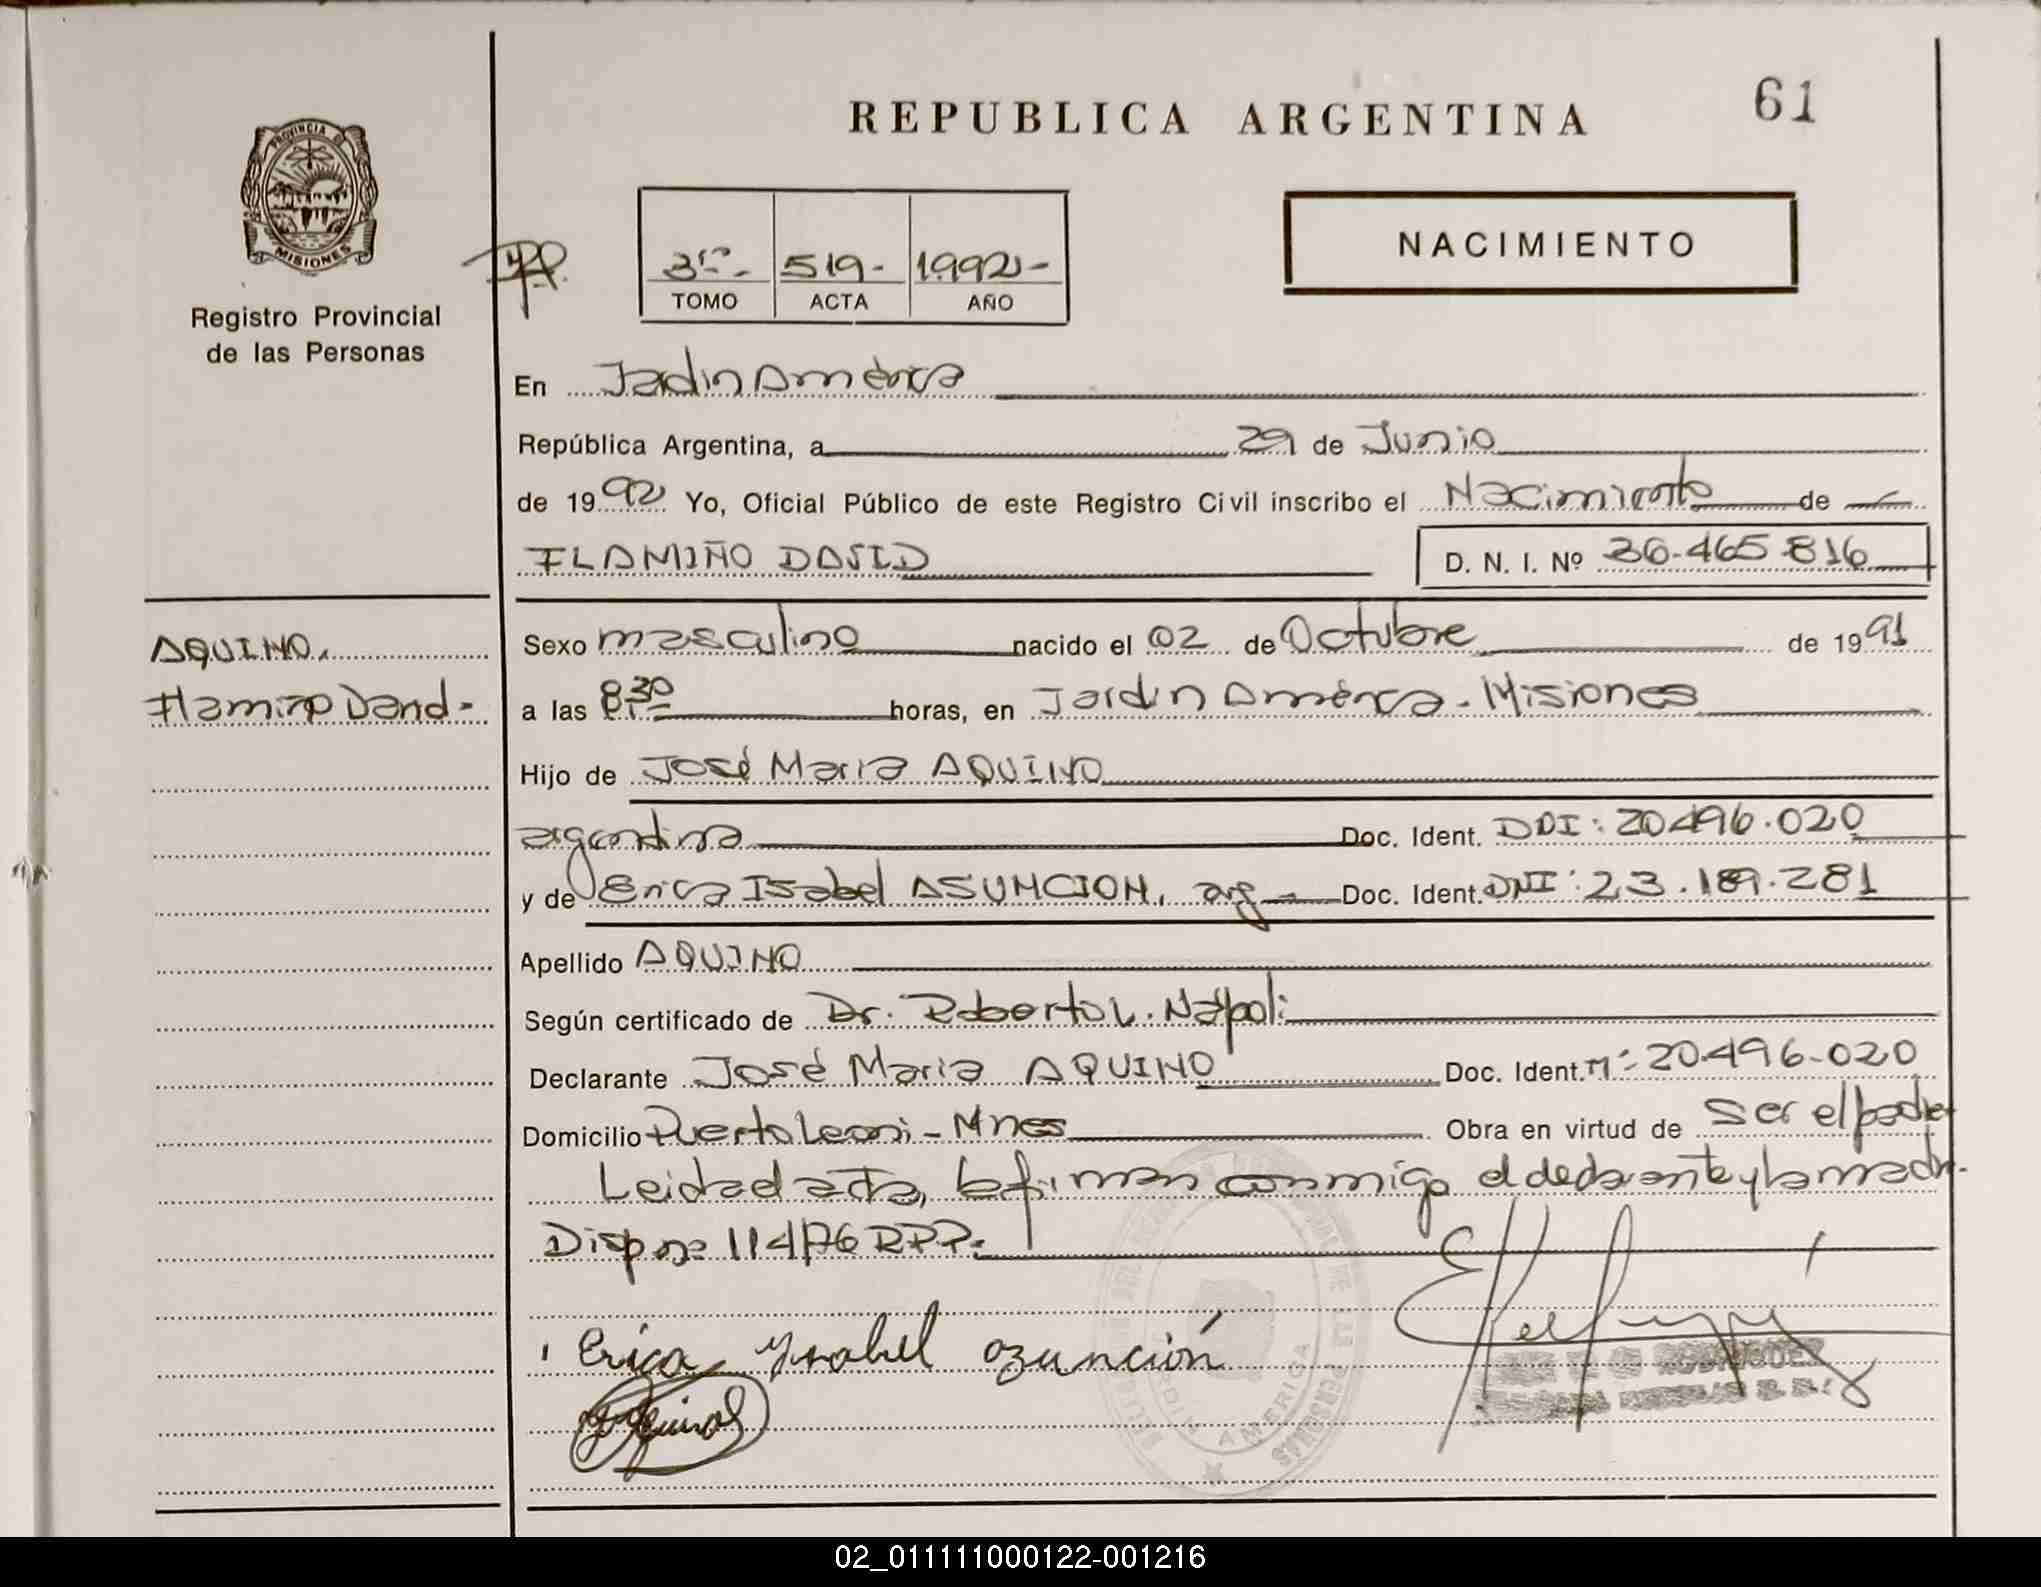 61
REPUBLICA ARGENTINA
PROVINCIA DE
MISIONES
Registro Provincial
de las Personas
3ro- 519- 1992-
TOMO ACTA AÑO
NACIMIENTO
En Jardin América
República Argentina, a 29 de Junio
de 1992 Yo, Oficial Público de este Registro Civil inscribo el Nacimiento de
FLAMIÑO DAVID D. N. I. Nº 36.465.816
AQUINO.
Flamiño David-
Sexo masculino nacido el 02 de Octubre de 1991
a las 8:30 horas, en Jardin América - Misiones
Hijo de José Maria AQUINO
argentina Doc. Ident. DNI: 20496.020
y de Erica Isabel ASUNCION, arg Doc. Ident. DNI: 23.189.281
Apellido AQUINO
Según certificado de Dr. Roberto L. Nápoli
Declarante José Maria AQUINO Doc. Ident. Mº 20.496-020
Domicilio Puerto Leoni - Mnes Obra en virtud de Ser el padre
Leida el acta, la firman conmigo el declarante y la madre.
Dispos 114/76 RPP.
Erica Ysabel azunción
AMERICA
RODRIGUEZ
02_011111000122-001216